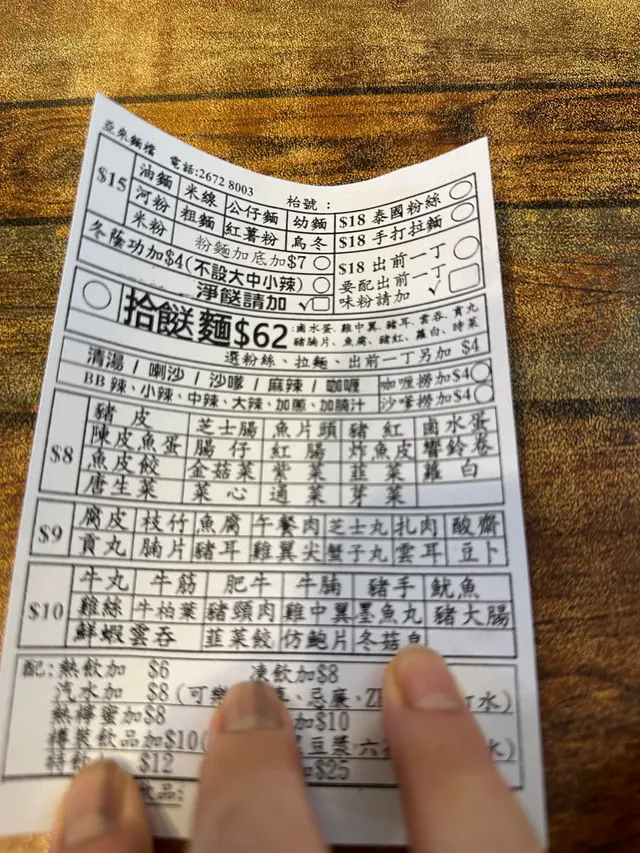 亞來麵檔 電話:2672 8003 枱號:
$15 油麵 米線 公仔麵 幼麵
河粉 粗麵 紅薯粉 烏冬
米粉 粉麵加底加$7
冬蔭功加$4(不設大中小辣)
淨餸請加 ✓
$18 泰國粉絲
$18 手打拉麵
$18 出前一丁
要配出前一丁
味粉請加 ✓
拾餸麵$62 :鹵水蛋、雞中翼、豬耳、雲吞、貢丸
豬腩片、魚腐、豬紅、蘿白、時菜
選粉絲、拉麵、出前一丁另加 $4
清湯 / 喇沙 / 沙嗲 / 麻辣 / 咖喱 咖喱撈加$4
BB辣、小辣、中辣、大辣、加蔥、加腩汁 沙嗲撈加$4
$8 豬皮 芝士腸 魚片頭 豬紅 鹵水蛋
陳皮魚蛋 腸仔 紅腸 炸魚皮 響鈴卷
魚皮餃 金菇菜 紫菜 韮菜 蘿白
唐生菜 菜心 通菜 芽菜
$9 腐皮 枝竹 魚腐 午餐肉 芝士丸 扎肉 酸齋
貢丸 腩片 豬耳 雞翼尖 蟹子丸 雲耳 豆卜
$10 牛丸 牛筋 肥牛 牛腩 豬手 魷魚
雞絲 牛柏葉 豬頸肉 雞中翼 墨魚丸 豬大腸
鮮蝦雲吞 韮菜餃 仿鮑片 冬菇
配:熱飲加 $6 凍飲加$8
汽水加 $8(可樂、忌廉、水)
熱檸蜜加$8 加$10
樽裝飲品加$10( 豆漿、六 水)
$12 加$25
飲品: